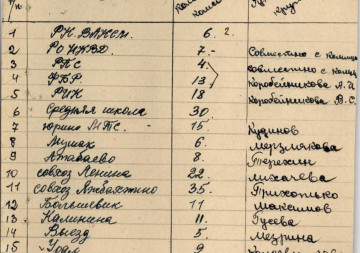 п/п
1 РК. ВЛКСМ. 6. 2.
2 РО НКВД 7. - Совместно с
3 РПС 4. совместно с
4 РБР. 13 Коробейникова А. И
5 РИК 18 Коробейникова В. С.
6 Средняя школа 30
7 Юрино МТС. 15 Кудинов
8 Мушак 6. Мерзлякова
9 Атабаево 8. Терехин
10 совхоз Ленина 22. Лихачева
11 совхоз 35. Трихотько
12 Большевик 11 Максимов
13 Калинина 11. Гусева
14 Выезд 5 Мезрина
15 9